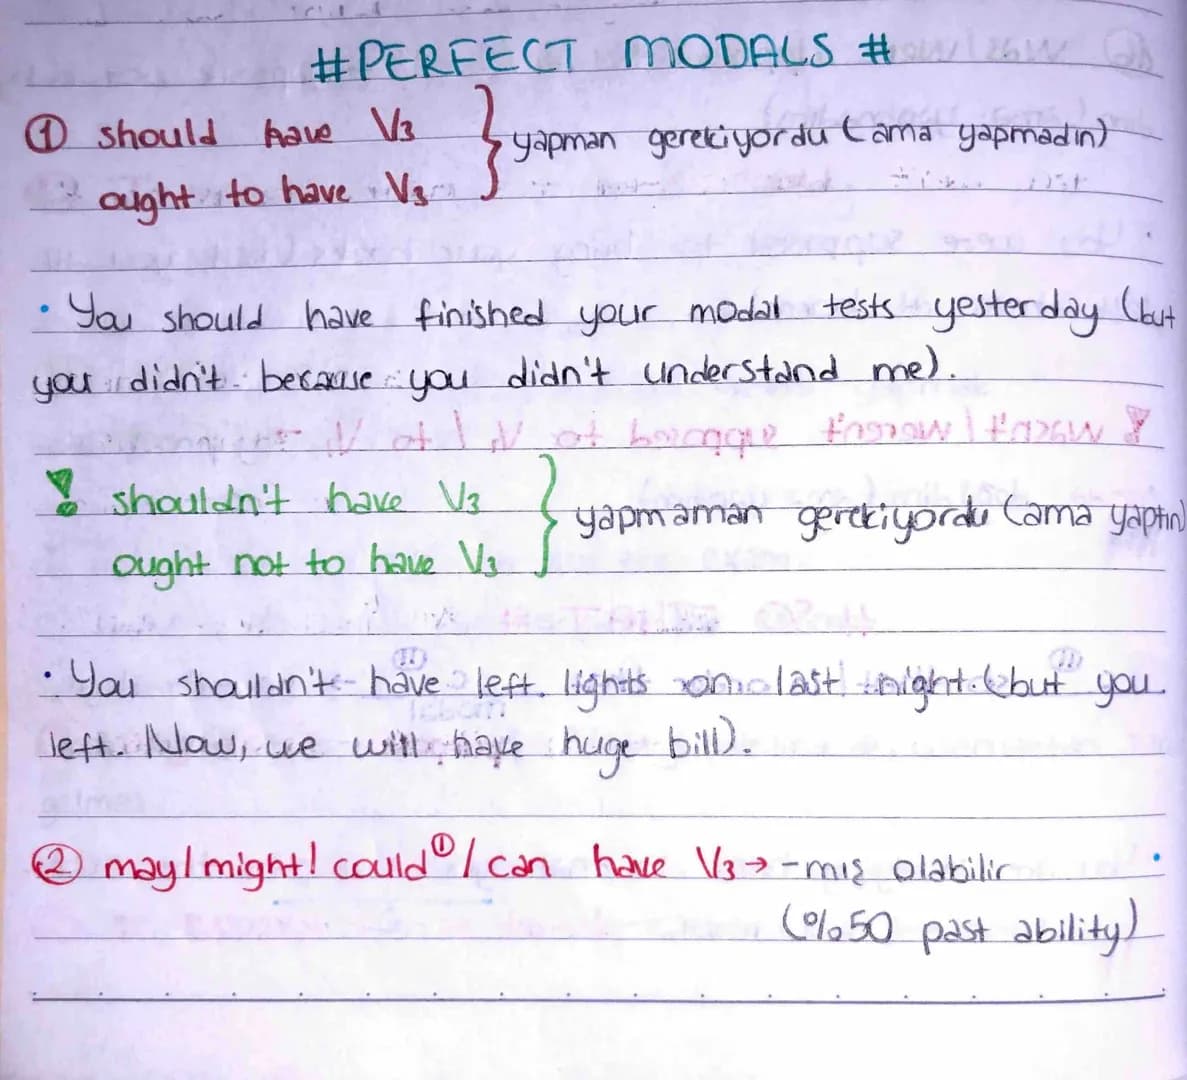 # PERFECT MODALS #
① should have V3 } yapman gerekiyordu (ama yapmadın)
ought to have V3
• You should have finished your modal tests yesterday (but
you didn't because you didn't understand me).
! shouldn't have V3 } yapmaman gerekiyordu (ama yaptın)
ought not to have V3
• You shouldn't have left lights on last night. (but you
left. Now, we will have huge bill).
② may/might/could① / can have V3 → -mış olabilir
(%50 past ability)